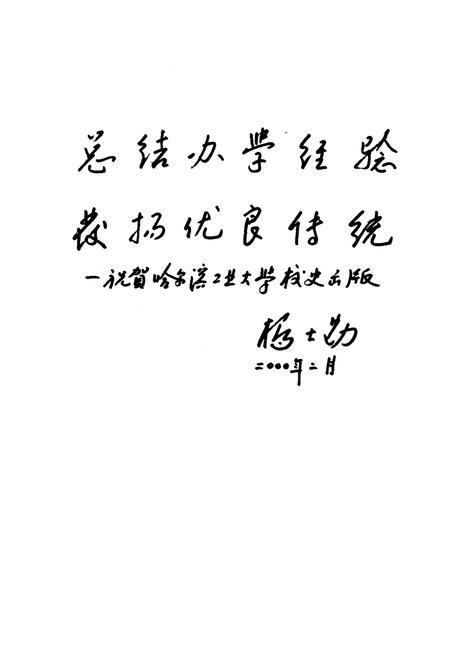 总结办学经验
发扬优良传统
—祝贺哈尔滨工业大学校史出版
杨士勤
二〇〇〇年二月